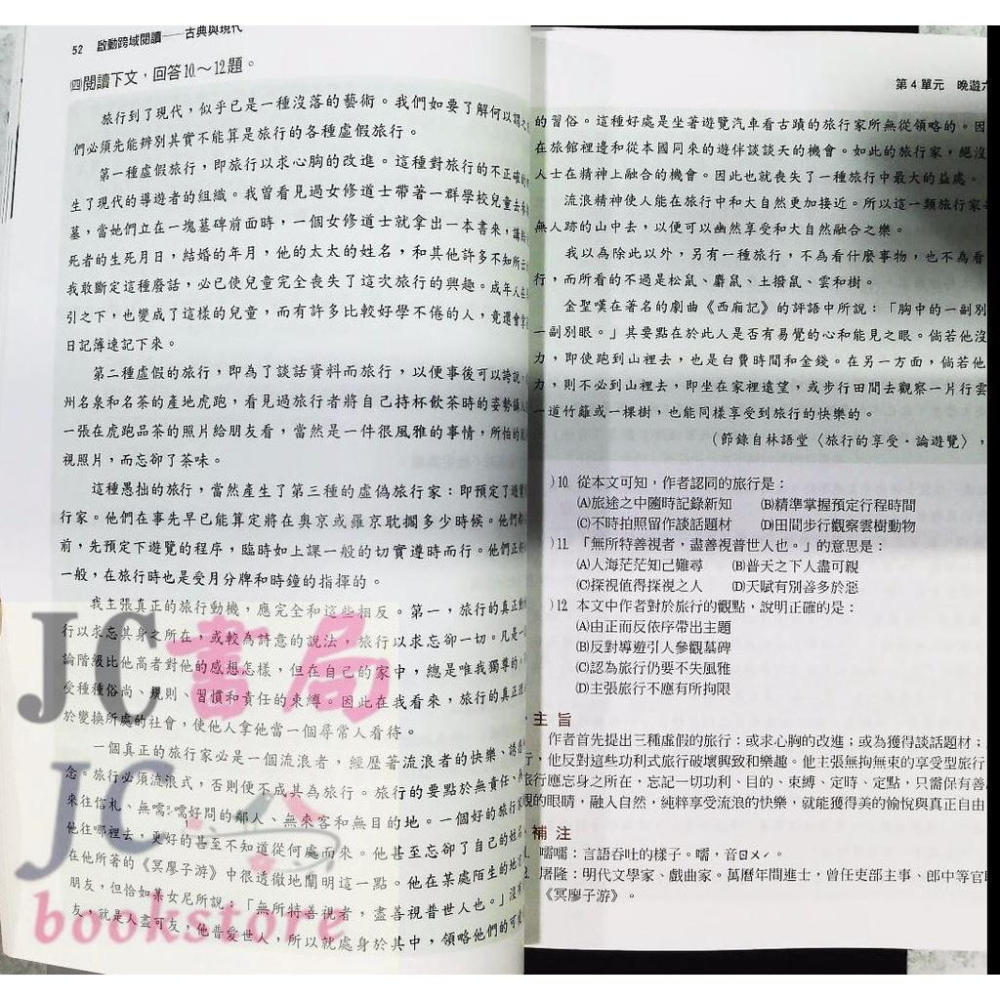 52 啟動跨域閱讀——古典與現代
㈣閱讀下文，回答10.～12題。
旅行到了現代，似乎已是一種沒落的藝術。我們如要了解何以謂之
們必須先能辨別其實不能算是旅行的各種虛假旅行。
第一種虛假旅行，即旅行以求心胸的改進。這種對旅行的不正確
生了現代的導遊者的組織。我曾看見過女修道士帶著一群學校兒童去
墓，當她們立在一塊墓碑前面時，一個女修道士就拿出一本書來，講
死者的生死月日，結婚的年月，他的太太的姓名，和其他許多不知所云
我敢斷定這種廢話，必已使兒童完全喪失了這次旅行的興趣。成年人在
引之下，也變成了這樣的兒童，而有許多比較好學不倦的人，竟還會
日記簿速記下來。
第二種虛假的旅行，即為了談話資料而旅行，以便事後可以誇說。
州名泉和名茶的產地虎跑，看見過旅行者將自己持杯飲茶時的姿勢
一張在虎跑品茶的照片給朋友看，當然是一件很風雅的事情，所怕的
視照片，而忘卻了茶味。
這種愚拙的旅行，當然產生了第三種的虛偽旅行家：即預定了遊
行家。他們在事先早已能算定將在奧京或羅京耽擱多少時候。他們
前，先預定下遊覽的程序，臨時如上課一般的切實遵時而行。他們正
一般，在旅行時也是受月分牌和時鐘的指揮的。
我主張真正的旅行動機，應完全和這些相反。第一，旅行的真正動
行以求忘其身之所在，或較為詩意的說法，旅行以求忘卻一切。凡是一
論階級比他高者對他的感想怎樣，但在自己的家中，總是唯我獨尊的。
受種種俗尚、規則、習慣和責任的束縛。因此在我看來，旅行的真正
於變換所處的社會，使他人拿他當一個尋常人看待。
一個真正的旅行家必是一個流浪者，經歷著流浪者的快樂、誘
念。旅行必須流浪式，否則便不成其為旅行。旅行的要點於無責任、
來往信札、無嚅嚅好問的鄰人、無來客和無目的地。一個好的旅行家
他往哪裡去，更好的甚至不知道從何處而來。他甚至忘卻了自己的姓名
在他所著的《冥廖子游》中很透徹地闡明這一點。他在某處陌生的地
朋友，但恰如某女尼所說：「無所特善視者，盡善視普世人也。」沒有
友，就是人盡可友，他普愛世人，所以就處身於其中，領略他們的可愛
第4單元 晚遊六
的習俗。這種好處是坐著遊覽汽車看古蹟的旅行家所無從領略的。因
在旅館裡邊和從本國同來的遊伴談談天的機會。如此的旅行家，絕沒
人士在精神上融合的機會。因此也就喪失了一種旅行中最大的益處。
流浪精神使人能在旅行中和大自然更加接近。所以這一類旅行家
無人跡的山中去，以便可以幽然享受和大自然融合之樂。
我以為除此以外，另有一種旅行，不為看什麼事物，也不為看
行，而所看的不過是松鼠、麝鼠、土撥鼠、雲和樹。
金聖嘆在著名的劇曲《西廂記》的評語中所說：「胸中的一副別
一副別眼。」其要點在於此人是否有易覺的心和能見之眼。倘若他沒
力，即使跑到山裡去，也是白費時間和金錢。在另一方面，倘若他
力，則不必到山裡去，即坐在家裡遠望，或步行田間去觀察一片行雲
一道竹籬或一棵樹，也能同樣享受到旅行的快樂的。
（節錄自林語堂〈旅行的享受・論遊覽〉，
）10. 從本文可知，作者認同的旅行是：
(A)旅途之中隨時記錄新知 (B)精準掌握預定行程時間
(C)不時拍照留作談話題材 (D)田間步行觀察雲樹動物
）11. 「無所特善視者，盡善視普世人也。」的意思是：
(A)人海茫茫知己難尋 (B)普天之下人盡可親
(C)探視值得探視之人 (D)天賦有別善多於惡
）12. 本文中作者對於旅行的觀點，說明正確的是：
(A)由正而反依序帶出主題
(B)反對導遊引人參觀墓碑
(C)認為旅行仍要不失風雅
(D)主張旅行不應有所拘限
主旨
作者首先提出三種虛假的旅行：或求心胸的改進；或為獲得談話題材；
行，他反對這些功利式旅行破壞興致和樂趣。他主張無拘無束的享受型旅行
旅行應忘身之所在，忘記一切功利、目的、束縛、定時、定點，只需保有善感
視的眼睛，融入自然，純粹享受流浪的快樂，就能獲得美的愉悅與真正自由
補注
嚅嚅：言語吞吐的樣子。嚅，音ㄖㄨˊ。
屠隆：明代文學家、戲曲家。萬曆年間進士，曾任吏部主事、郎中等官職
《冥廖子游》。
JC書局
JC
bookstore